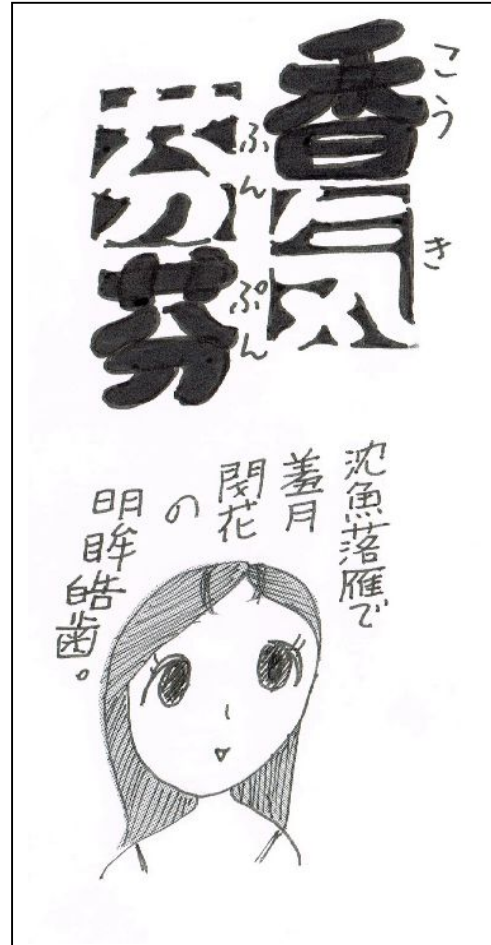 香気
こうき
芬芬
ふんぷん
沈魚落雁で
羞月
閉花
の
明眸皓歯。